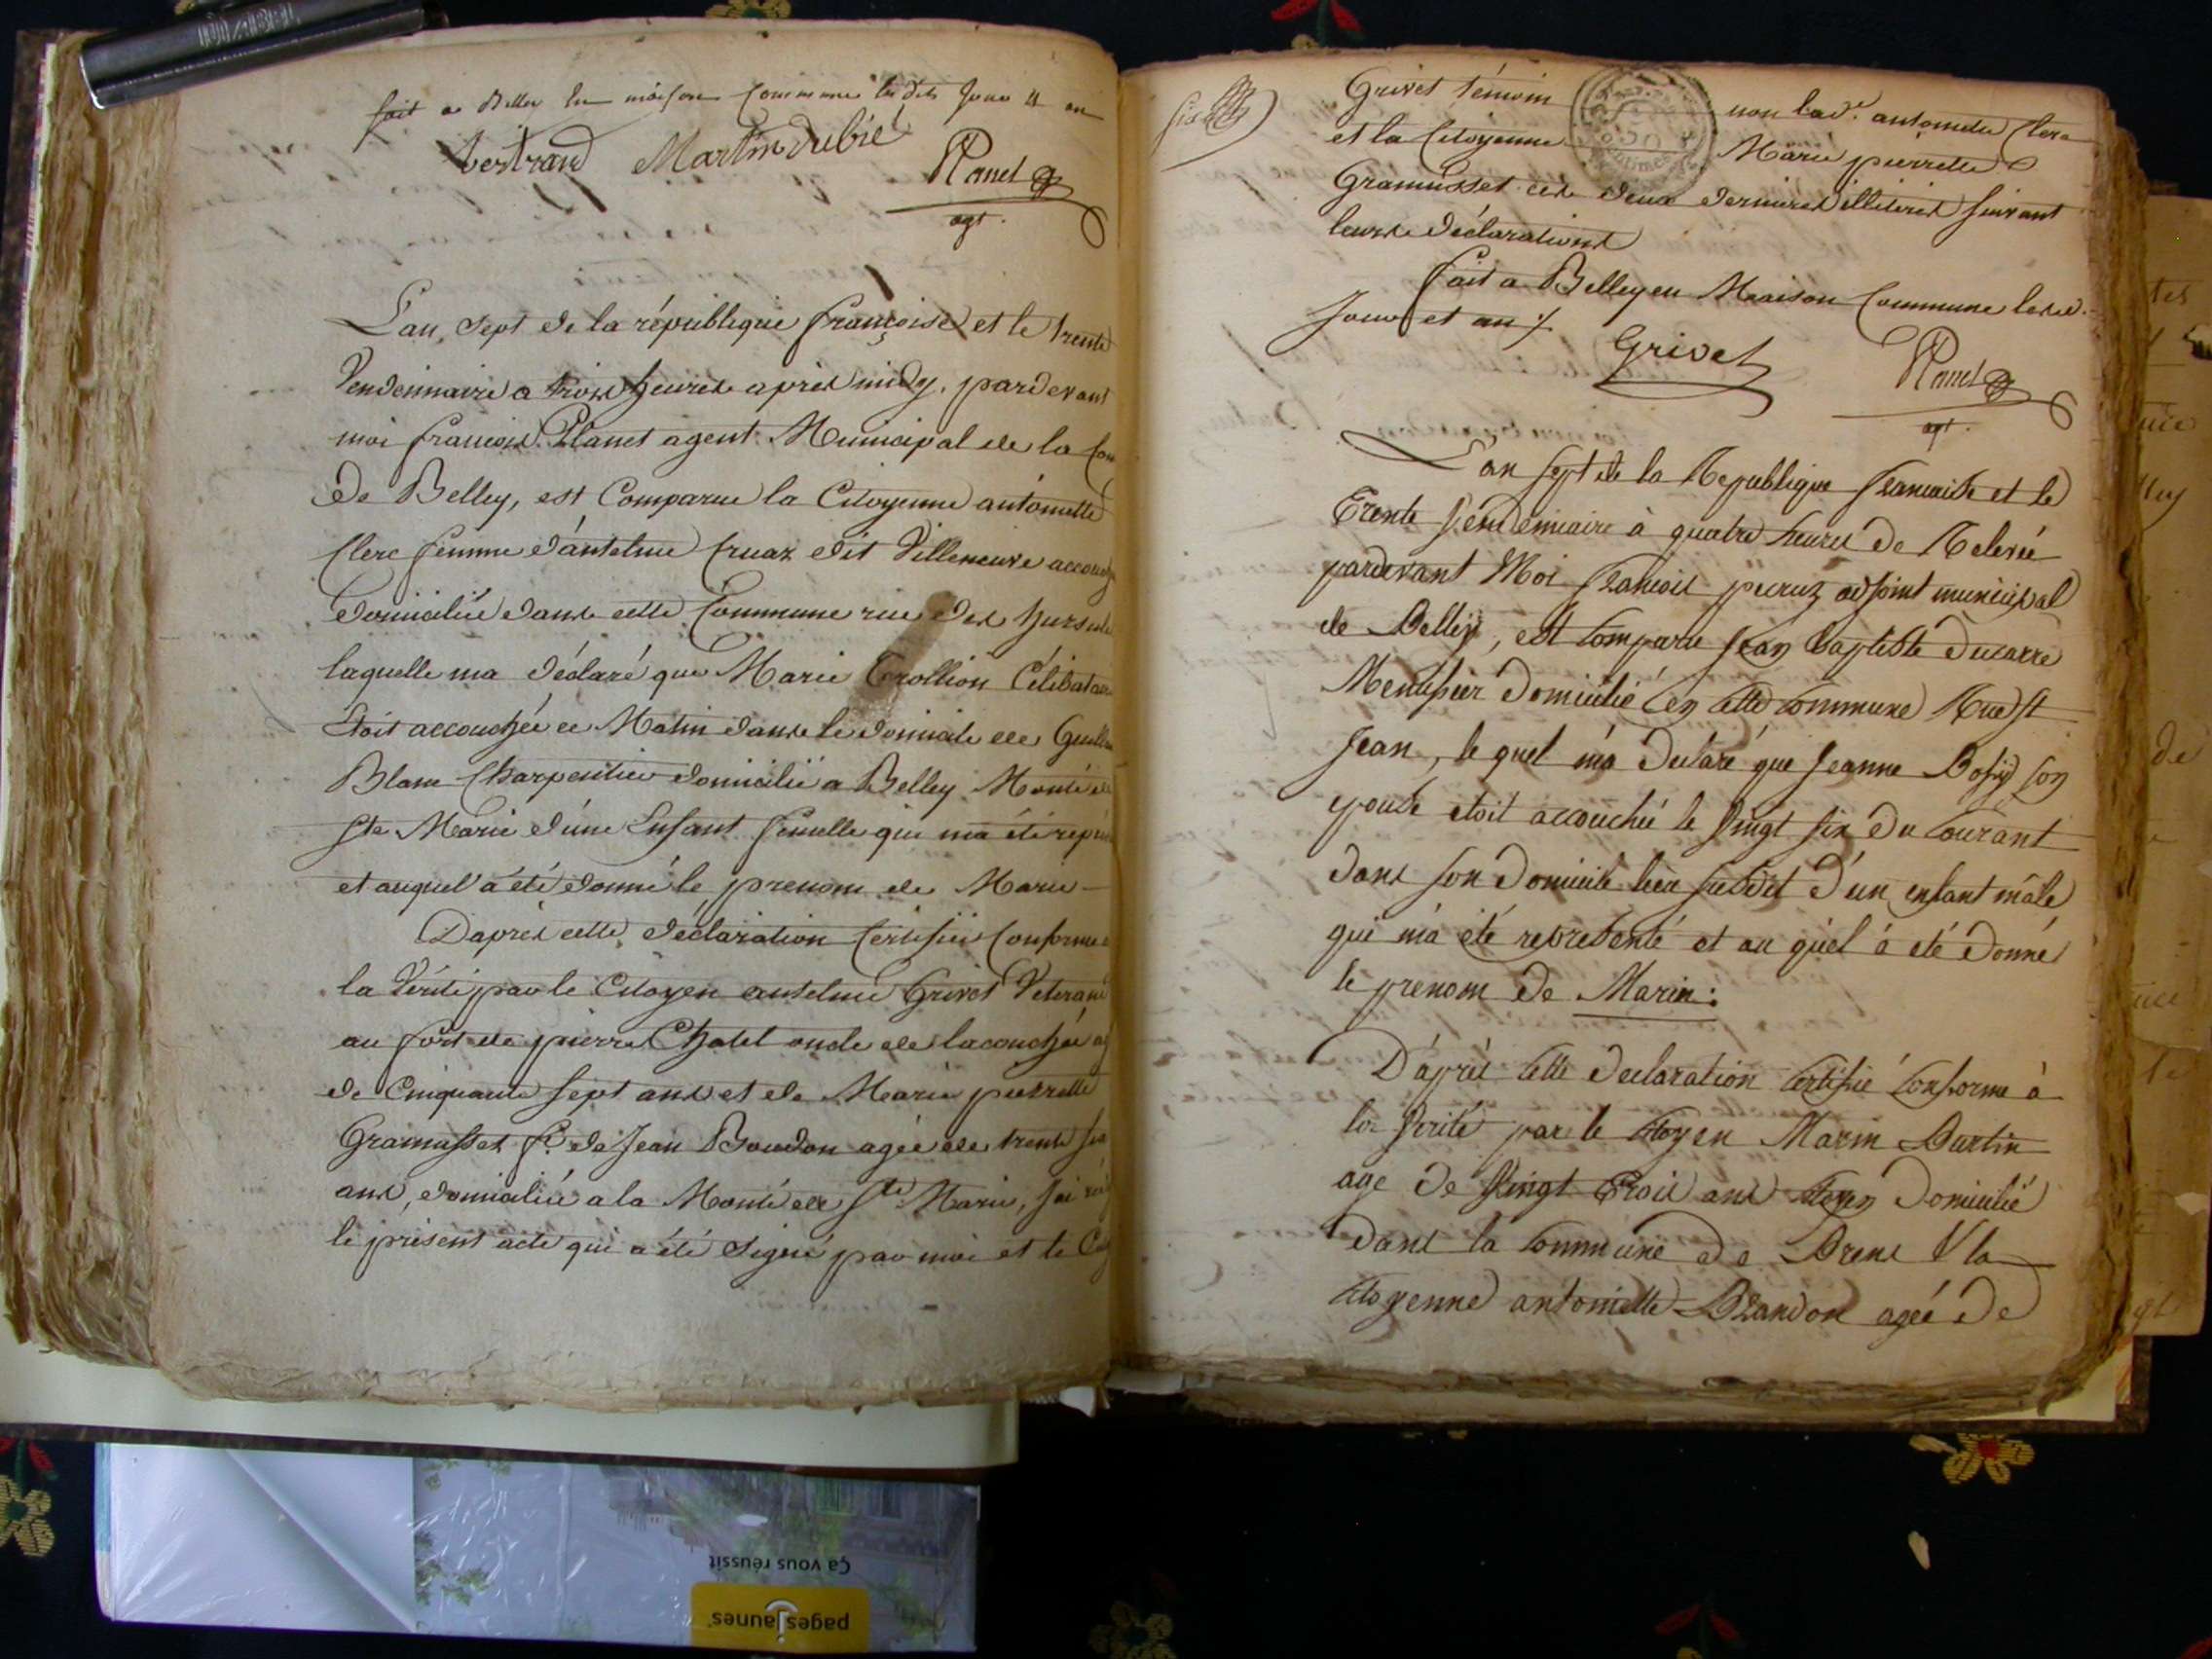 fait a Belley en maison Commune les dits Jour & an
bertrand Martin dubié
Planet
agt.
L'an sept de la république françoise et le trente
Vendemiaire a trois heures apres midy, pardevant
moi francois Planet agent Municipal de la Com
de Belley, est Comparue la Citoyenne antoinette
Clerc femme d'antelme Cruaz dit Villeneuve
domiciliée dans cette Commune rue des
laquelle ma déclaré que Marie Trollion Célibataire
étoit accouchée ce Matin dans le domicile de
Blanc Charpentier domicilié a Belley Monté de
Ste Marie d'une Enfant femelle qui ma été
et auquel a été donné le prenom de Marie
D'apres cette déclaration Certifiée Conforme
la Vérité par le Citoyen antelme Grivet Veteran
au fort de pierre Chatel oncle de lacouchée
de Cinquante sept ans et de Marie pierrette
Gramusset fe. de Jean Boudon agée de trente
ans, domiciliée a la Monté de Ste Marie, jai
le présent acte qui a été signé par moi et le
Grivet témoin non lad. antoinette Clerc
et la Citoyenne Marie pierrette
Gramusset ces deux dernieres illiteres suivant
leurs déclarations
fait a Belley en Maison Commune
Jour et an
Grivet
Planet
agt.
L'an sept de la Republique francaise et le
Trente Vendemiaire à quatre heures de Relevée
pardevant Moi francois peruz adjoint municipal
de Belley, est Comparu Jean Baptiste Ducarre
Menusier Domicilié en cette commune Rue st
Jean, le quel m'a Declaré que Jeanne son
epouse etoit accouchée le Vingt six du courant
dans son Domicile susdit d'un enfant mâle
qui m'a été representé et au quel à eté donné
le prenom de Marin:
D'après cette declaration certifié conforme à
la Verité par le citoyen Marin Burtin
age de Vingt trois ans Domicilié
dans la commune de Brens & la
citoyenne antoinette Brandon agée de
pagesjaunes
Ça vous réussit